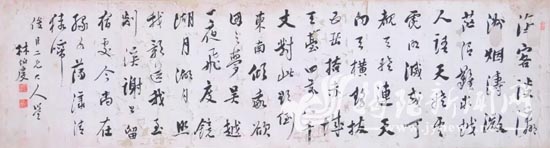 海客談瀛
洲烟濤微
茫信難求越
人語天姥雲
霓明滅或可
覩天姥連天
向天橫勢拔
五嶽掩赤城
天臺四萬八千
丈對此欲倒
東南傾我欲
因之夢吳越
一夜飛度鏡
湖月湖月照
我影送我至
剡溪謝公留
宿處今尚在
綠水蕩漾清
猿啼
大人鑒
林伯